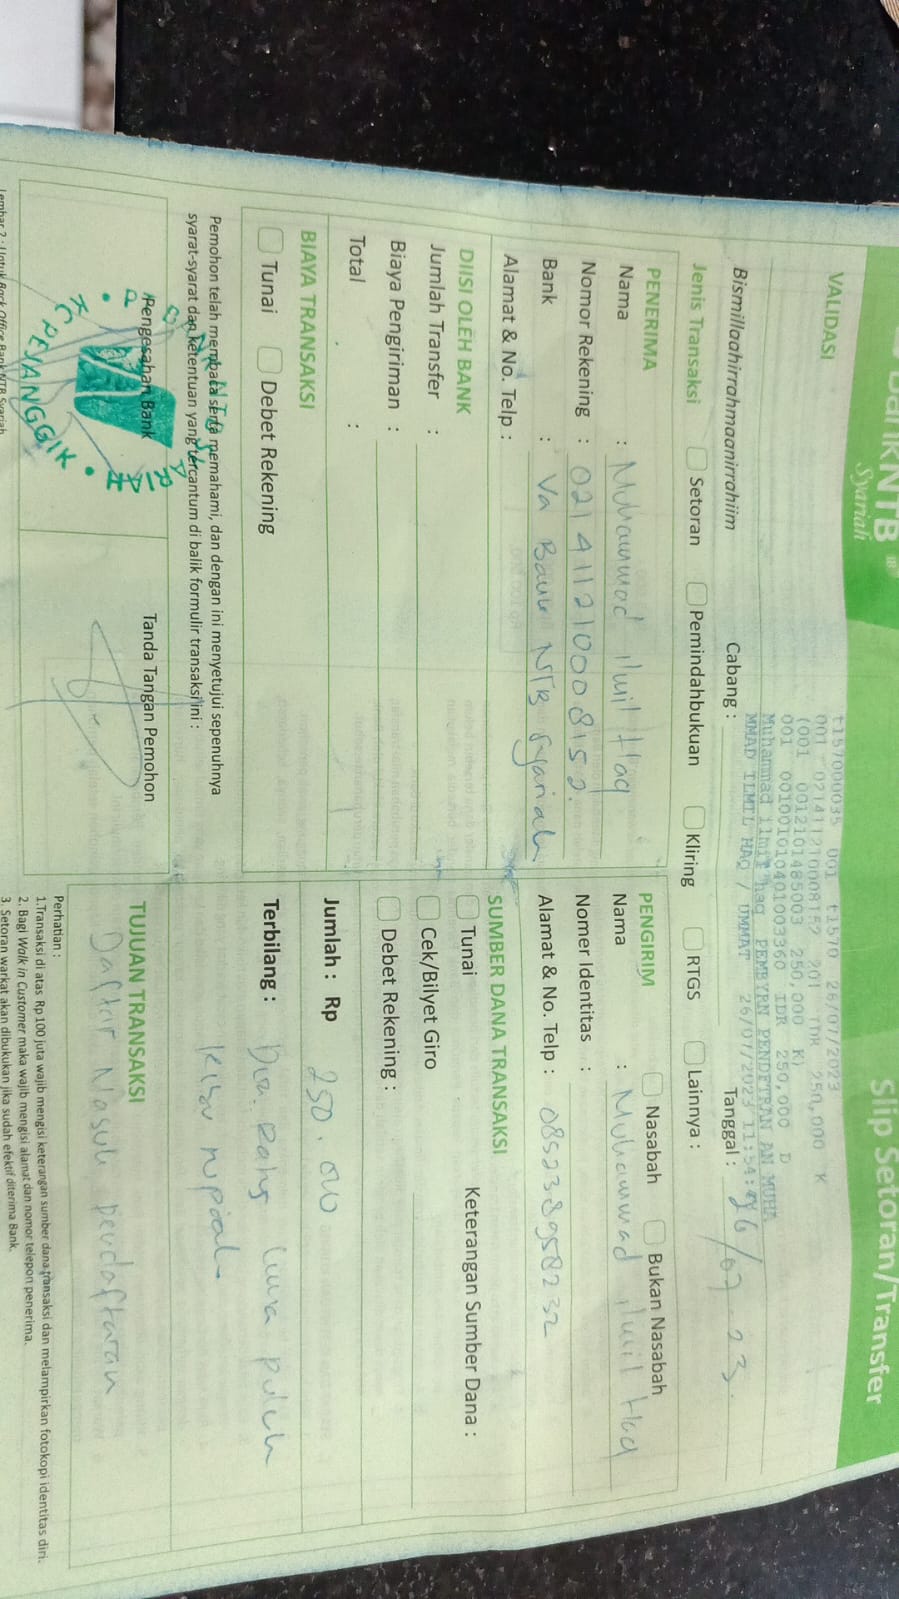 Bank NTB
Syariah
Slip Setoran/Transfer
VALIDASI
t157000035 001 t1570 26/07/2023
001 0214112100008152 201 IDR 250,000 K
(001 0012101485003 250,000 K)
001 0010010401003360 IDR 250,000 D
Muhammad ilmil haq PEMBYRN PENDFTRAN AN MUHA
MMAD ILMIL HAQ / UMMAT 26/07/2023 11:54:
Bismillaahirrahmaanirrahiim
Cabang :
Tanggal : 26/07 23.
Jenis Transaksi
Setoran
Pemindahbukuan
Kliring
RTGS
Lainnya :
PENERIMA
Nama : Muhammad ilmil Haq
Nomor Rekening : 0214112100008152.
Bank : Va Bank NTB Syariah
Alamat & No. Telp :
PENGIRIM
Nasabah
Bukan Nasabah
Nama : Muhammad ilmil Haq
Nomer Identitas :
Alamat & No. Telp : 085238958232
DIISI OLEH BANK
Jumlah Transfer :
Biaya Pengiriman :
Total :
SUMBER DANA TRANSAKSI
Tunai
Keterangan Sumber Dana :
Cek/Bilyet Giro
Debet Rekening :
BIAYA TRANSAKSI
Tunai
Debet Rekening
Jumlah : Rp 250.000
Terbilang : Dua Ratus lima puluh
ribu rupiah
Pemohon telah membaca serta memahami, dan dengan ini menyetujui sepenuhnya
syarat-syarat dan ketentuan yang tercantum di balik formulir transaksi ini :
Pengesahan Bank
Tanda Tangan Pemohon
PEJANGGIK
TUJUAN TRANSAKSI
Daftar Masuk pendaftaran
Perhatian :
1.Transaksi di atas Rp100 juta wajib mengisi keterangan sumber dana transaksi dan melampirkan fotokopi identitas diri.
2. Bagi Walk in Customer maka wajib mengisi alamat dan nomor telepon penerima.
3. Setoran warkat akan dibukukan jika sudah efektif diterima Bank.
Lembar 2 : Untuk Back Office Bank NTB Syariah